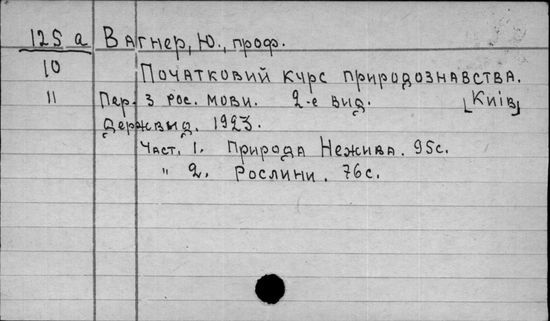 125 а Вагнер, Ю., проф.
10 Початковий курс природознавства.
11 Пер. з рос. мови. 2-е вид. [Київ]
Держвид. 1923.
Част. 1. Природа Нежива. 95с.
" 2. Рослини. 76с.